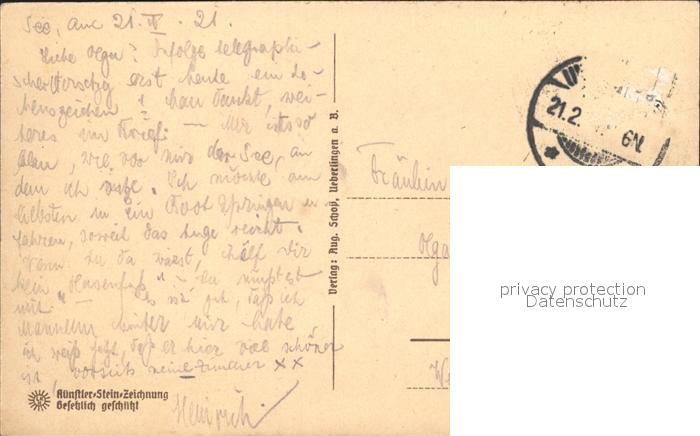 See, am 21. II. 21.
Liebe Olga! Infolge telegraphi-
scher erst heute ein Le-
benszeichen! Man dankt, wei-
teres im Brief. — Mir ist so
wie vor mir der See, an
dem ich sitze. Ich möchte am
liebsten in ein Boot springen u.
fahren, soweit das Auge reicht.
Wenn Du da wärst, hälf Dir
kein "Hasenfuß" — Du müßtest
mit. — es ist gut, daß ich
hinter mir habe
ich weiß jetzt, daß er hier viel schöner
ist, meine XX
Heinrich.
Künstler-Stein-Zeichnung
Gesetzlich geschützt
Verlag: Aug. Schoy, Ueberlingen a. B.
21.2.
6N.
Fräulein
Olga
privacy protection
Datenschutz